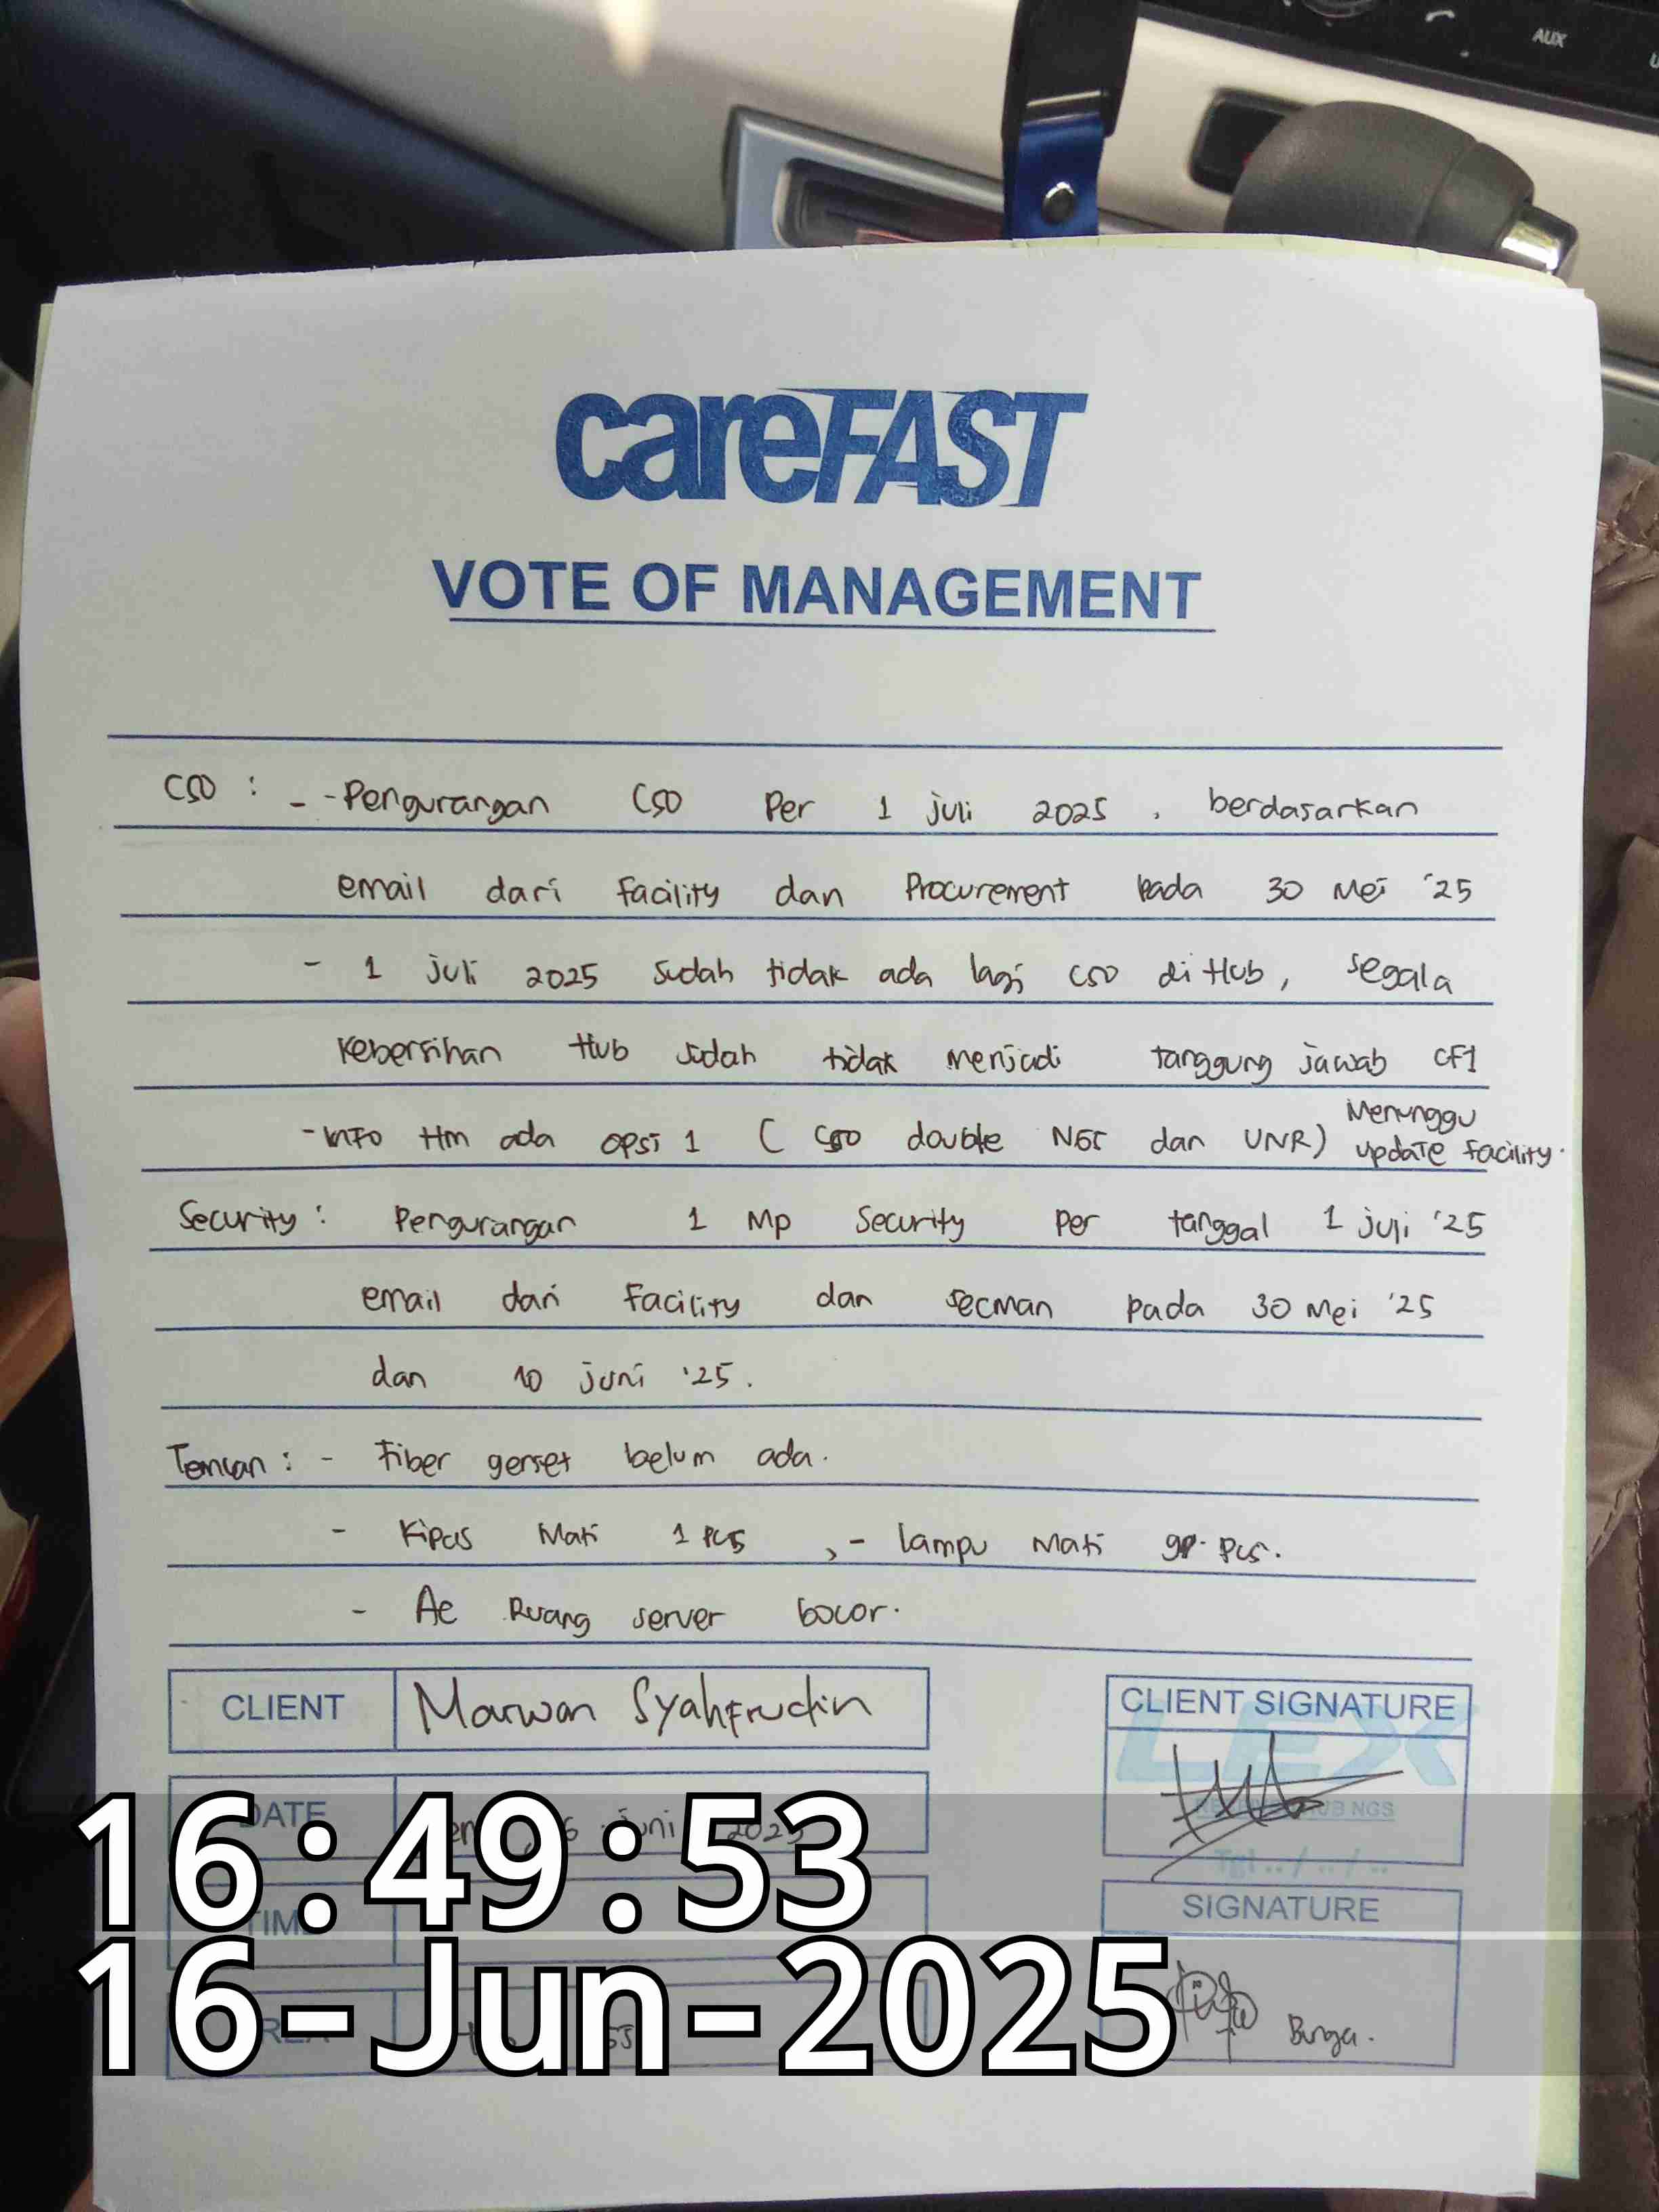 AUX
careFAST
VOTE OF MANAGEMENT
CSO : - - Pengurangan CSO Per 1 juli 2025 , berdasarkan
email dari facility dan Procurement pada 30 Mei '25
- 1 juli 2025 sudah tidak ada lagi CSO di Hub, segala
kebersihan Hub sudah tidak menjadi tanggung jawab CFI
- Info Hm ada opsi 1 ( CSO double NGS dan UNR) Menunggu
update facility.
Security : Pengurangan 1 Mp Security per tanggal 1 juli '25
email dari Facility dan secman pada 30 Mei '25
dan 10 juni '25.
Temuan : - Fiber genset belum ada.
- Kipas Mati 1 Pcs , - lampu Mati pcs.
- Ac Ruang server bocor.
CLIENT Marwan Syahfrudin
CLIENT SIGNATURE
LEX
HUB NGS
Tgl .. / .. / ..
DATE juni 2025
TIME
AREA
SIGNATURE
Bunga.
16:49:53
16-Jun-2025